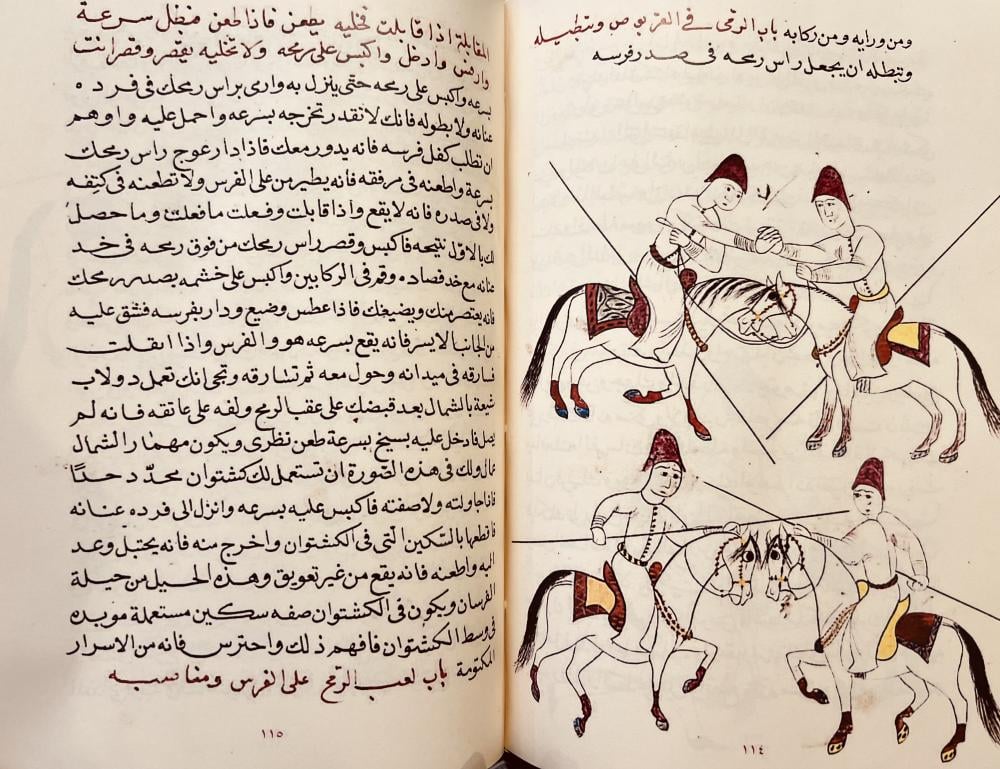 ومن ورايه ومن ركابه باب الرمى في القربوص وتبطيله
وتبطله ان يجعل راس رمحه فى صدر فرسه
١١٤
المقابلة اذا قابلت فخليه يطعن فاذا طعن فبطل سرعة
وارهش وادخل واكبس على رمحه ولا تخليه يقصر وقصر انت
بسرعه واكبس على رمحه حتى ينزل به وارى براس رمحك فى فرده
عنانه ولا بطوله فانك لا تقدر تخرجه بسرعه واحمل عليه واوهم
ان تطلب كفل فرسه فانه يدور معك فاذا دار عوج راس رمحك
بسرعة واطعنه فى مرفقه فانه يطير من على الفرس ولا تطعنه فى كتفه
ولا فى صدره فانه لا يقع واذا قابلت وفعلت ما فعلت وما حصل
لك بالاول نتيحه فاكبس وقصر راس رمحك من فوق رمحه فى خد
عنانه مع خد فصاده وقم فى الركابين واكبس على خشمه بصدر رمحك
فانه يعتصر منك ويضيعك فاذا عطس وضيع ودار بفرسه فشق عليه
من الجانب الايسر فانه يقع بسرعه هو والفرس واذا انقلت
فسارقه فى ميدانه وحول معه ثم تشارقه وتجى انك تعمل دولاب
شبعة بالشمال بعد قبضك على عقب الرمح ولفه على عاتقه فانه لم
يصل فادخل عليه بسيخ بسرعة طعن نظرى ويكون مهماز الشمال
عمال ولك فى هذه الصورة ان تستعمل لك كشتوان محدد حدا
فاذا جاولته ولاصفته فاكبس عليه بسرعه وانزل الى فرده عنانه
فاقطعها بالسكين التى فى الكشتوان واخرج منه فانه يختبل وعد
اليه واطعنه فانه يقع من غير تعويق وهذه الحيل من حيلة
الفرسان ويكون فى الكشتوان صفه سكين مستعملة موبده
فى وسط الكشتوان فافهم ذلك واحترس فانه من الاسرار
المكتومة باب لعب الرمح على الفرس ومناسبه
١١٥